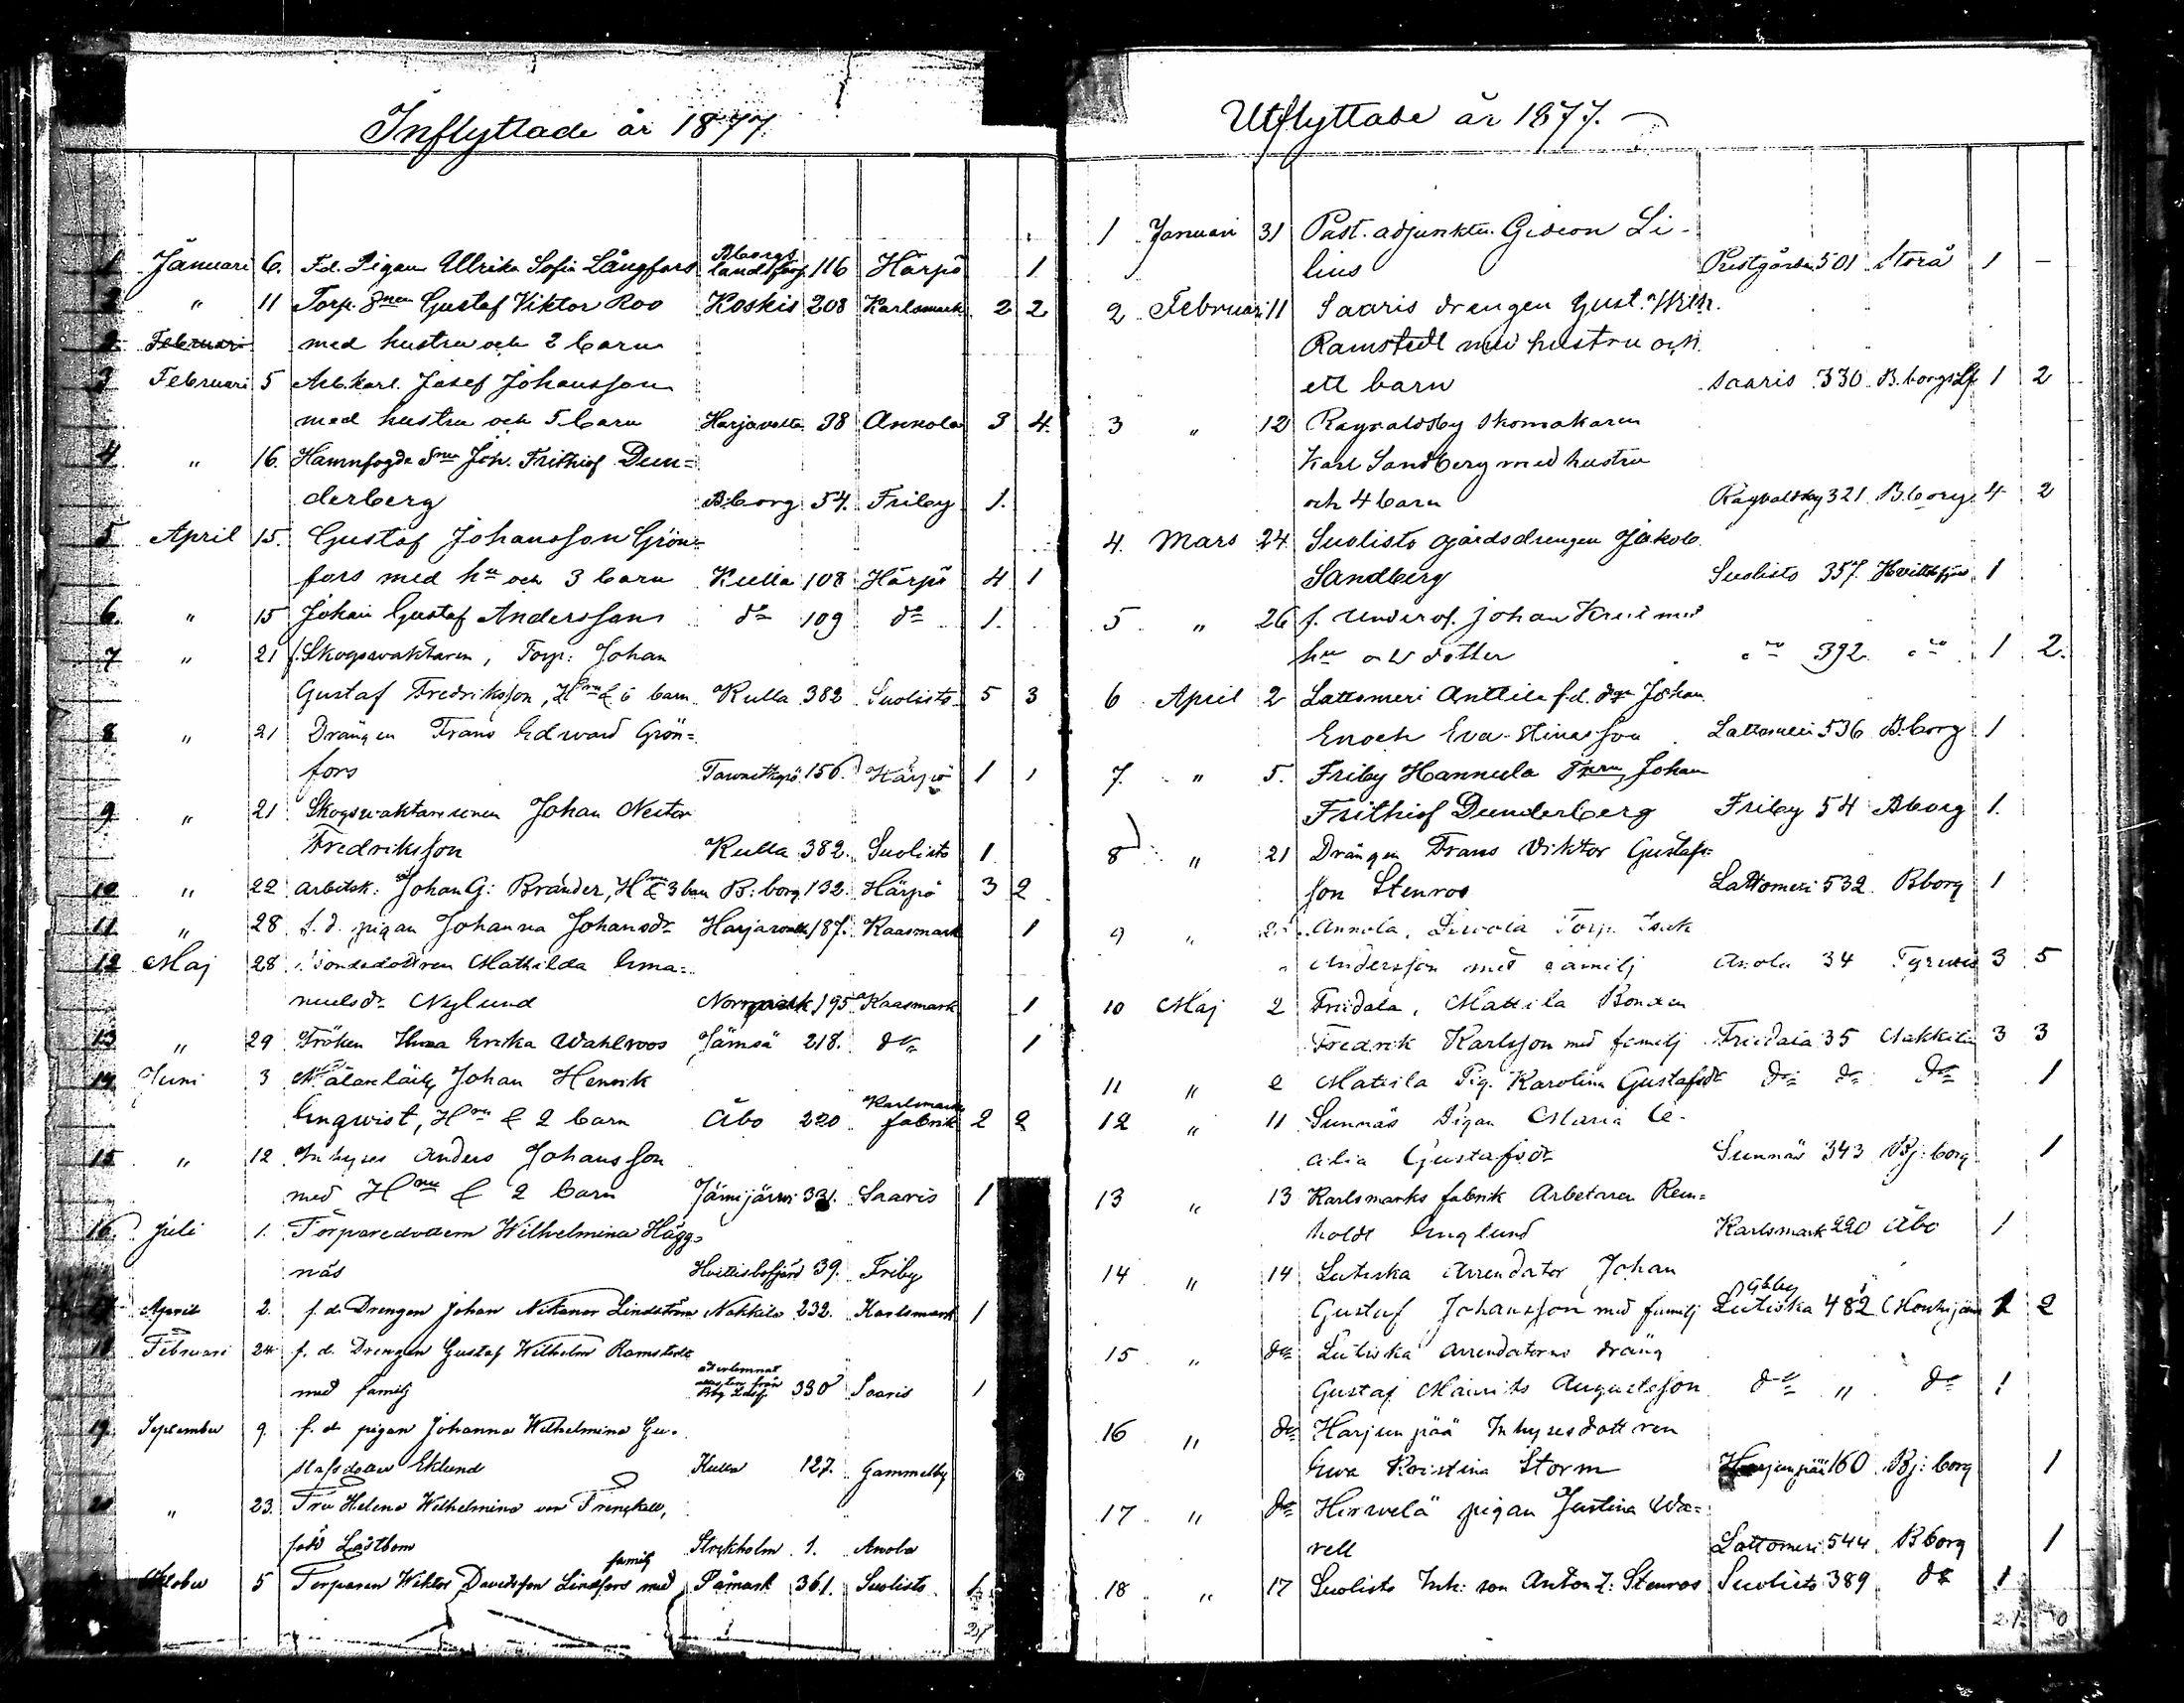 Inflyttade år 1877.
1 Januari 6. F.d. Pigan Ullrika Sofia Långfors B:borgs landsförs. 116 Härpö 1
2 " 11 Torp. Snen Gustaf Viktor Roo Koskis 208 Karlsmark 2 2
2 Februari med hustru och 2 barn
3 Februari 5 Arb.karl. Josef Johansson
med hustru och 5 barn Harjavalta 38 Annola 3 4
4 " 16. Hamnfogde Snen Joh. Frithiof Dun=
derberg B:borg 54. Friby 1.
5 April 15. Gustaf Johansson Grön=
fors med hu och 3 barn Kulla 108 Härpö 4 1
6. " 15 Johan Gustaf Andersson do 109 do 1.
7 " 21 f. Skogsvaktaren, Torp: Johan
Gustaf Fredriksson, Hru & 6 barn Kulla 382 Suolisto 5 3
8 " 21 Drängen Frans Edward Grön=
fors 156. Härpö 1
9 " 21 Skogsvaktaresonen Johan Nestor
Fredriksson Kulla 382. Suolisto 1
10 " 22 arbetsk: Johan G: Brander, Hru & 3 barn B:borg 132. Härpö 3 2
11 " 28 f.d. pigan Johanna Johansdr Harjavalta 187. Kaasmark 1
12 Maj 28 Bondedottren Mathilda Ema=
nuelsdr Nylund Norrmark 195 Kaasmark 1
13 " 29 Fröken Erika Wahlroos Jämsä 218. do 1
14 Juni 3 Johan Henrik
Engwist, Hru & 2 barn Åbo 220 Karlsmarks fabrik 2 2
15 " 12 Inhyses Anders Johansson
med Hru & 2 barn Jämijärvi 331. Saaris 1
16. Juli 1. Torparedottern Wilhelmina Hägg=
näs Hvittisbofjärd 39. Friby
April 2. f.d. Drengen Johan Nikanor Lindström Nakkila 232. Karlsmark 1
18 Februari 24 f.d. Drengen Gustaf Wilhelm Ramstedt
med familj återlemnat från Bbg Ldsf. 330 Saaris 1
19. September 9. f.d. pigan Johanna Wilhelmina Gu=
stafsdotter Eklund Kulla 127. Gammelby
20 " 23. Fru Helena Wilhelmina von Frenckell,
född Låstbom Stockholm 1. Anola
Oktober 5 Torparen Wiktor Davidsson Lindfors med familj Påmark 361. Suolisto
Utflyttade år 1877.
1 Januari 31 Past. adjunkten Gideon Li-
lius Prestgården 501 Storå 1 -
2 Februari 11 Saaris drengen Gust. Wilh.
Ramstedt med hustru och
ett barn Saaris 330 B.borgs Lf 1 2
3 " 12 Ragvaldsby skomakaren
Karl Sandberg med hustru
och 4 barn Ragvaldsby 321 B.borg. 4 2
4. Mars 24 Suolisto gårdsdrengen Jakob
Sandberg Suolisto 357. 1
5 " 26 f. Underof. Johan med
hu och dotter do 392 do 1 2.
6 April 2 Lattomeri Anttila f.d. Johan
Enoch Eva-Stinasson Lattomeri 536 B:borg 1
7. " 5. Friby Hannula Johan
Frithiof Dunderberg Friby 54 Bborg 1.
8 " 21 Drängen Frans Viktor Gustafs=
son Stenros Lattomeri 532 Bborg 1
9 " Annola, Torp. Isak
Andersson med familj Anola 34 Tyrvis 3 5
10 Maj 2 Friidala, Mattila Bonden
Fredrik Karlsson med familj Friidala 35 Nakkila 3 3
11 " 2 Mattila Pig. Karolina Gustafsdr do do do 1
12 " 11 Sunnäs Pigan Maria Ce-
cilia Gustafsdr Sunnäs 343 Bj:borg 1
13 " 13 Karlsmarks fabrik Arbetaren Rein=
holdt Englund Karlsmark 220 Åbo 1
14 " 14 Lutiska Arrendator Johan
Gustaf Johansson med familj Lutiska 482 1 2
15 " do Lutiska arrendatorns dräng
Gustaf Maurits Augustsson do " do 1
16 " do Harjunpää Inhysesdottren
Ewa Kristina Storm Harjunpää 160 Bj:borg 1
17 " do Hirvelä pigan Justina Wa=
rell Lattomeri 544 Bborg 1
18 " 17 Suolisto Inh: son Anton Z: Stenros Suolisto 389 do 1